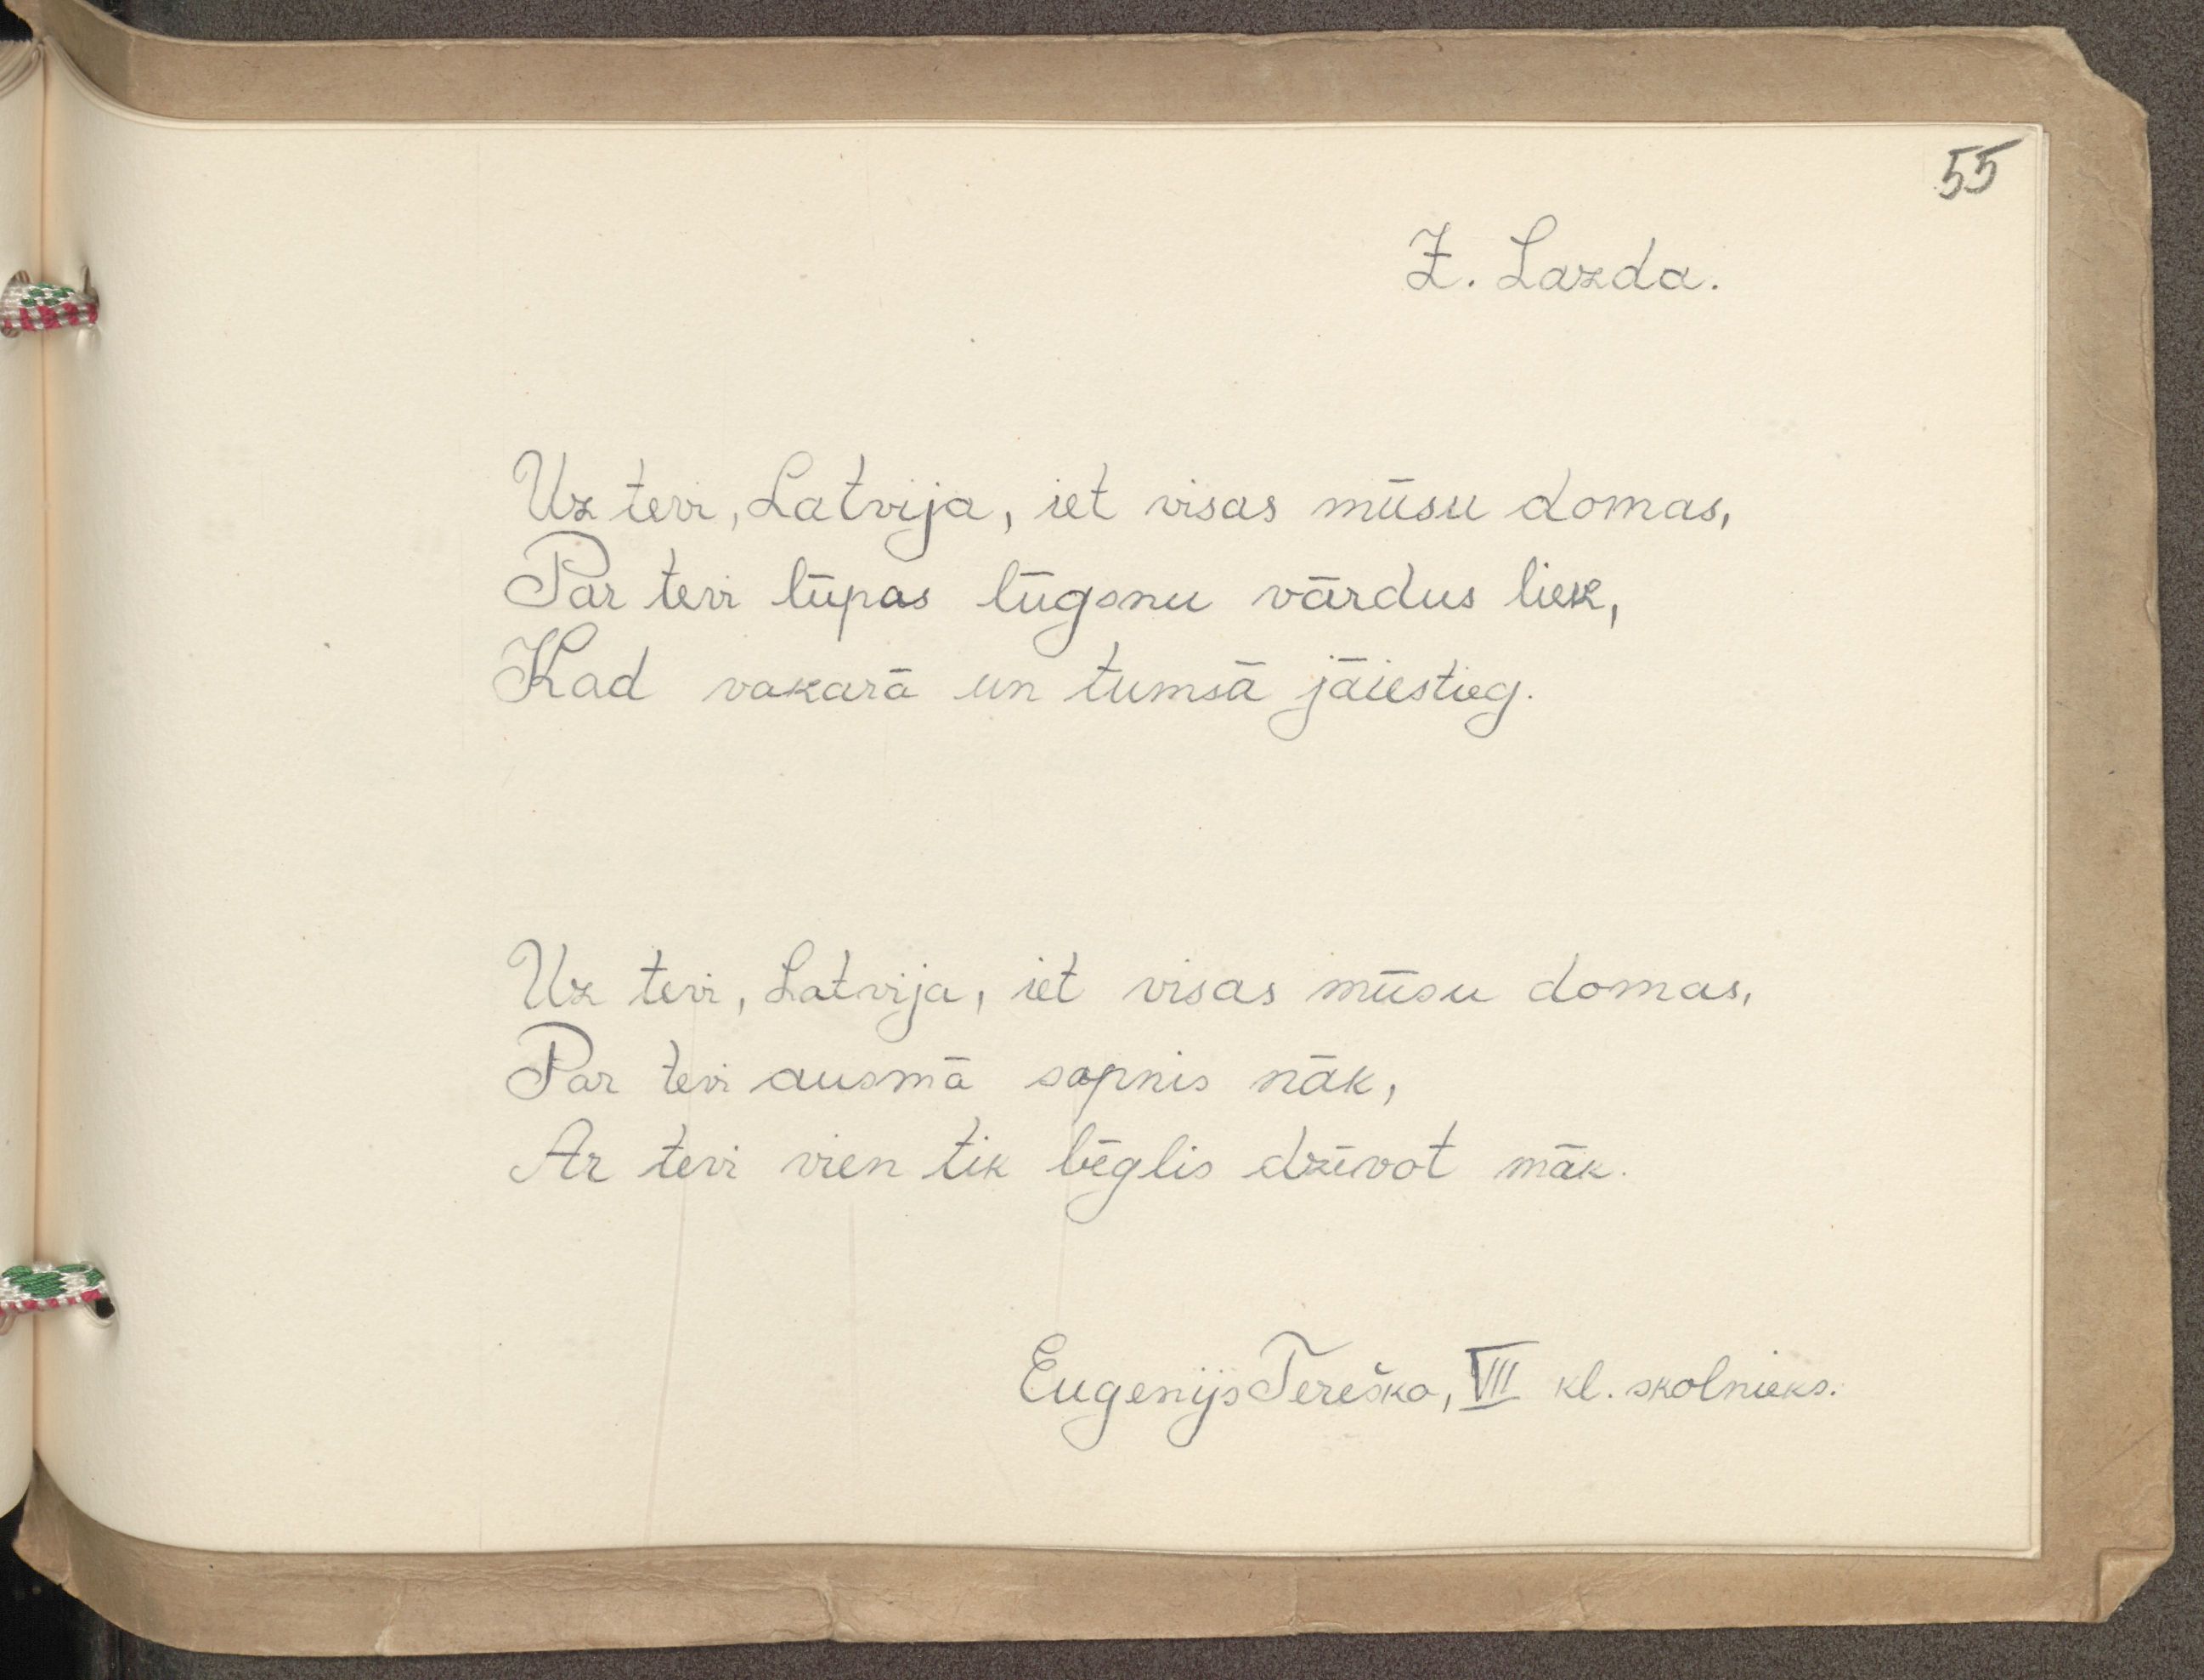 55
Z. Lazda.
Uz tevi, Latvija, iet visas mūsu domas,
Par tevi lūpas lūgsnu vārdus liek,
Kad vakarā un tumsā jāiestieg.
Uz tevi, Latvija, iet visas mūsu domas,
Par tevi ausmā sapnis nāk,
Ar tevi vien tik bēglis dzīvot māk.
Eugenijs Tereško, VII kl. skolnieks.